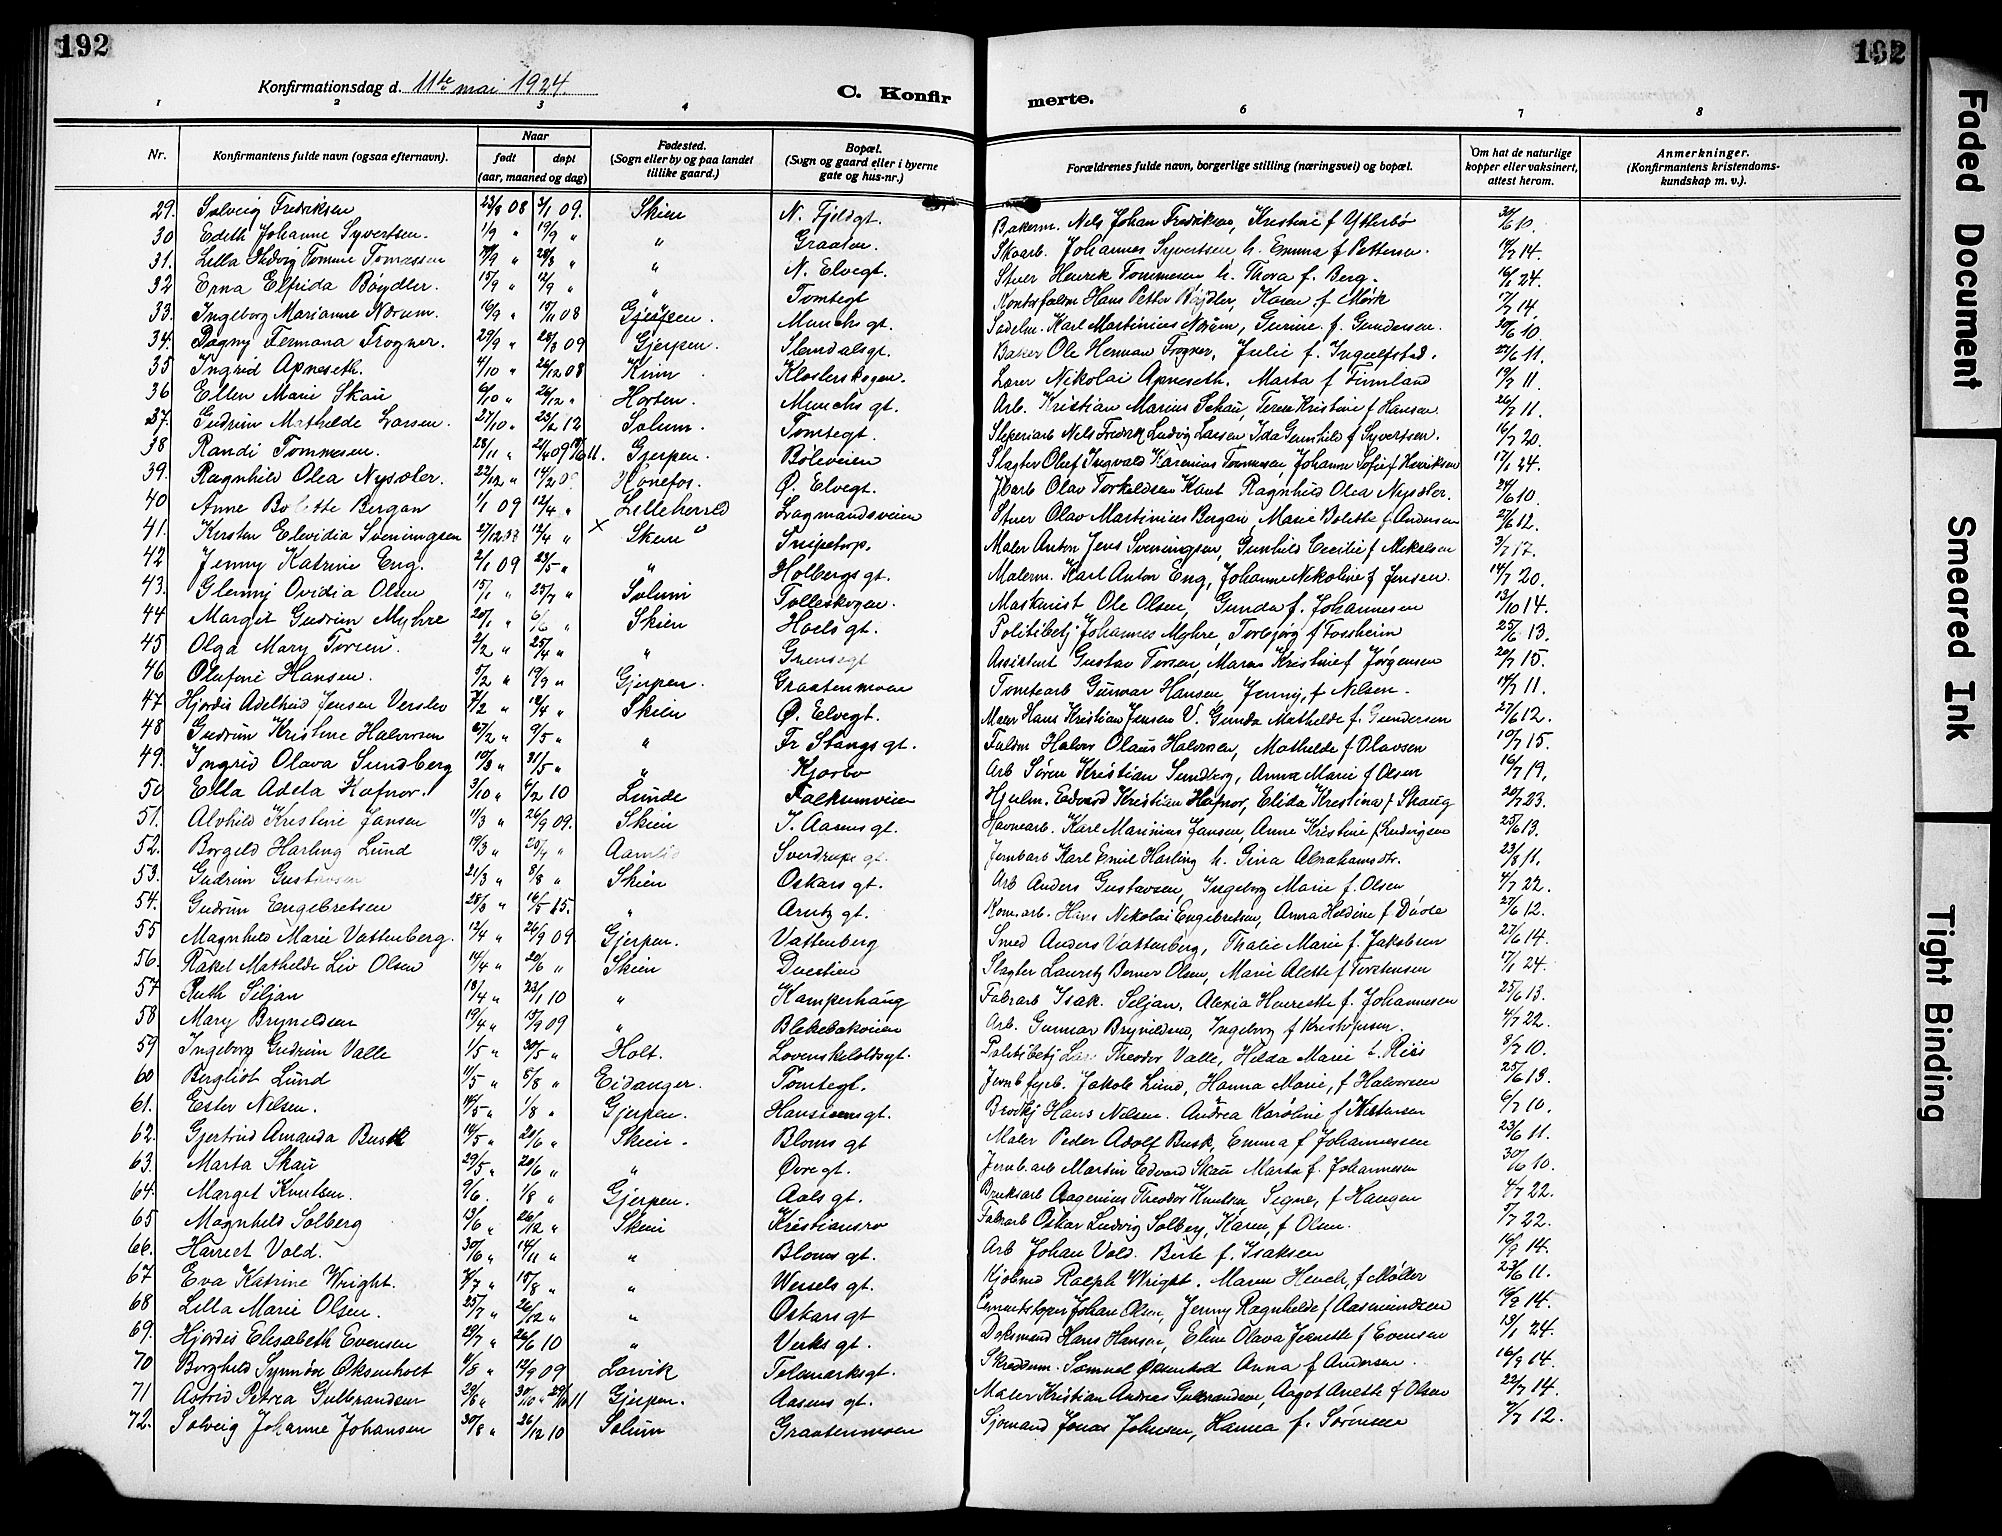 192
192
Konfirmationsdag d. 11te mai 1924.
C. Konfir merte.
1 2 3 4 6 7 8
Nr. Konfirmantens fulde navn (ogsaa efternavn). Naar født døpt (aar, maaned og dag) Fødested. (Sogn eller by og paa landet tillike gaard.) Bopæl. (Sogn og gaard eller i byerne gate og hus-nr.) Forældrenes fulde navn, borgerlige stilling (næringsvei) og bopæl. Om hat de naturlige kopper eller vaksinert, attest herom. Anmerkninger. (Konfirmantens kristendoms-kundskap m. v.).
29. Solveig Fredriksen 23/8 08 3/1 09. Skien N. Fjeldgt. Bakerm. Nels Johan Fredriksen, Kristine f Ytterbø 30/6 10.
30 Edith Johanne Syvertsen. 1/9 " 19/9 " " Graaten. Skoarb. Johannes Syvertsen h. Emma f Pettersen 14/7 14.
31. Lilla Hedvig Tomine Tomassen " " " N. Elvegt. Stuer Henrik Tommesen h. Thora f. Berg. 16/1 24.
32 Erna Elfrida Bøydler. 15/9 " " " Tomtegt Hans Petter Bøydler, Karen f Mørk 14.
33. Ingeborg Marianne Nørum. 16/9 " 08 Gjerpen. Munchs gt. Sadelm. Karl Martinius Nørum, Gurine f. Gundersen. 30/6 10
34. Dagny Fermana Frogner. 29/9 " 28/3 09 Gjerpen. Slemdalsgt. Baker Ole Herman Frogner, Julie f. Ingulfstad. 27/6 11.
35 Ingrid Apneseth. 4/10 " 26/12 08 Kinn Klosterskogen. Lærer Nikolai Apneseth. Marta f Finnland 19/7 11.
36 Ellen Marie Skau 6/10 " 26/12 " Horten. Munchs gt. Arb. Kristian Marius Schau, Teren Kristine f Hansen. 26/7 11.
37. Gudrun Mathilde Larsen. 27/10 " 23/2 12 Solum. Tomtegt. Sliperiarb Nels Fredrik Ludvig Larsen Ida Gunhild f Syvertsen. 16/7 20.
38 Randi Tommesen. 28/11 " 21/4 09 11. Gjerpen. Böleveien Slagter Oluf Ingvald Karenius Tommesen, Johanne Sofie f Henriksen 17/1 24.
39. Ragnhild Olea Nysæter. 22/12 " 14/2 Hønefos. Ø. Elvegt. Jbarb Olav Torkildsen Kaut Ragnhild Olea Nysæter. 24/6 10.
40 Anne Bolette Bergan 1/1 09 12/4 " Lilleherred Lagmandsveien Stuer Olav Martinius Bergan, Marie Bolette f Andersen 27/6 12.
41. Kirsten Elvidia Sveningsen 27/12 12/4 " x Skien " Snipetorp. Maler Anton Jens Sveningsen, Gunhild Cecilie f Mikelsen 3/7 17.
42 Jenny Katrine Eng. 2/1 09 23/5 " " Holbergs gt. Malerm. Karl Anton Eng, Johanne Nikoline f Jensen. 14/7 20.
43. Glenny Ovidia Olsen 15/1 " 25/7 " Solum Tolleskogen. Maskinist Ole Olsen, Gunda f. Johannesen 13/10 14.
44 Margit Gudrun Myhre 20/1 " 6/6 " Skien Hoels gt. Politibetj Johannes Myhre, Torbjørg f Fossheim 25/6 13.
45 Olga Mary Torsen. 2/2 " 25/4 " " Grensegt Assistent Gustav Torsen, Maren Kristine f Jørgensen 20/7 15.
46 Olufine Hansen. 5/2 " 19/9 " Gjerpen. Graatenmoen Tomtearb Gunnar Hansen, Jenny, f Nilsen. 14/7 11.
47 Hjordis Adelheid Jensen Verslev 7/2 " 12/4 " Skien Ø. Elvegt. Maler Hans Kristian Jensen V. Gunda Mathilde f. Gundersen 27/6 12.
48 Gudrun Kristine Halvorsen 27/2 " 9/5 " " Fr Stangs gt. Fulbm Halvor Olaus Halvorsen, Mathilde f Olavsen 19/7 15.
49. Ingrid Olava Sundberg 10/3 " 31/5 " " Kjorbo Arb Søren Kristian Sundberg, Anna Marie f Olsen 16/7 19.
50 Ella Adela Hafnor. 3/10 " 6/2 10 Lunde Falkumveien Hjulm. Edvard Kristian Hafnor, Elida Kristina f Skaug 20/7 23.
51. Alvhild Kristine Jansen 11/3 " 26/9 09. Skien I. Aasens gt. Havnearb. Karl Marinius Jansen, Anne Kristine f Ludvigsen 25/6 13.
52. Borgild Harling Lund 19/3 " 25/4 " Aamli Sverdrups gt. Jernbarb Karl Emil Harling h. Gina Abrahamsdtr. 23/8 11.
53. Gudrun Gustavsen 21/3 " 8/8 " Skien Oskars gt. Arb Anders Gustavsen, Ingeborg Marie f. Olsen 4/7 22.
54. Gudrun Engebretsen 28/3 " 16/5 15. " Arntz gt. Kom.arb. Hans Nikolai Engebretsen, Anna Heldine f Dåole 27/6 12.
55 Magnhild Marie Vattenberg. 12/4 " 26/9 09 Gjerpen. Vattenberg Smed Anders Vattenberg, Thalie Marie f. Jakobsen 27/6 14.
56. Rakel Mathilde Liv Olsen 14/4 " 20/6 " Skien Duestien Slagter Lauritz Berner Olsen, Marie Alette f Torstensen 17/1 24.
57 Ruth Siljan 18/4 " 23/1 10 " Kamperhaug Fabrarb Isak Siljan, Alexia Henriette f. Johannesen 25/6 13.
58 Mary Brynildsen 19/4 " 15/9 09 " Blekebakveien Arb. Gunnar Brynildsen, Ingeborg f Kristofersen. 4/7 22.
59 Ingeborg Gudrun Valle 1/5 " 30/5 " Holt. Lovenskioldsgt. Politibetj Lars Theodor Valle, Hilda Marie f. Riis 8/7 10.
60 Bergliot Lund 11/5 " 8/8 " Eidanger. Tomtegt. Jernb fyrb. Jakob Lund, Hanna Marie, f Halvorsen 25/6 13.
61. Ester Nilsen. 14/5 " 1/8 " Gjerpen. Hansinens gt. Brodkj Hans Nilsen. Andrea Karoline f Kittensen 6/7 10.
62. Gjertrud Amanda Busk 14/5 " 20/6 " Skien. Bloms gt Maler Peder Adolf Busk, Emma f Johannessen 23/6 11.
63. Marta Skau 29/5 " 20/6 " " Øvre gt. Jernb. arb Martin Edvard Skau Marta f. Johannesen 30/6 10.
64. Margit Knutsen. 9/6. 1/8 " Gjerpen. Aals gt. Bruksarb Aagenius Theodor Knutsen Signe, f Haugen 4/7 22.
65 Magnhild Solberg 13/6 " 26/12 " Skien Kristiansro Fabrarb Oskar Ludvig Solberg, Karen, f Olsen. 5/7 22.
66. Harriet Vold. 30/6 " 14/11 " " Bloms gt. Arb Johan Vold. Berte f. Isaksen 16/9 14.
67 Eva Katrine Wright. 4/7 " 15/8 " " Wessels gt. Kjobmd Ralph Wright. Maren Hench, f Møller 23/6 11.
68 Lilla Marie Olsen. 25/7 " 26/12 " " Oskars gt Cementstoper Johan Olsen, Jenny Ragnhilde f Aasmundsen 16/9 14.
69. Hjordis Elisabeth Evensen 29/7 " 26/6 10 " Verks gt. Doksmand Hans Hansen, Eline Olava Jeanette f Evensen 13/1 24.
70 Borghild Synnøve Oksenholt 4/8 " 12/9 09 Larvik Telemarksgt. Skreddm. Samuel Oksenholt Anna f Andersen. 16/9 14.
71 Astrid Petrea Gulbrandsen 29/6 " 30/10 " 29/10 11 Gjerpen. Aasens gt. Maler Kristian Andreas Gulbrandsen, Aagot Anette f Olsen 22/7 14.
72. Solveig Johanne Johansen 30/8 " 26/12 10 Solum Graatenmoen Sjømand Jonas Johnsen, Hanna f. Sørensen 9/7 12.
Faded Document
Smeared Ink
Tight Binding